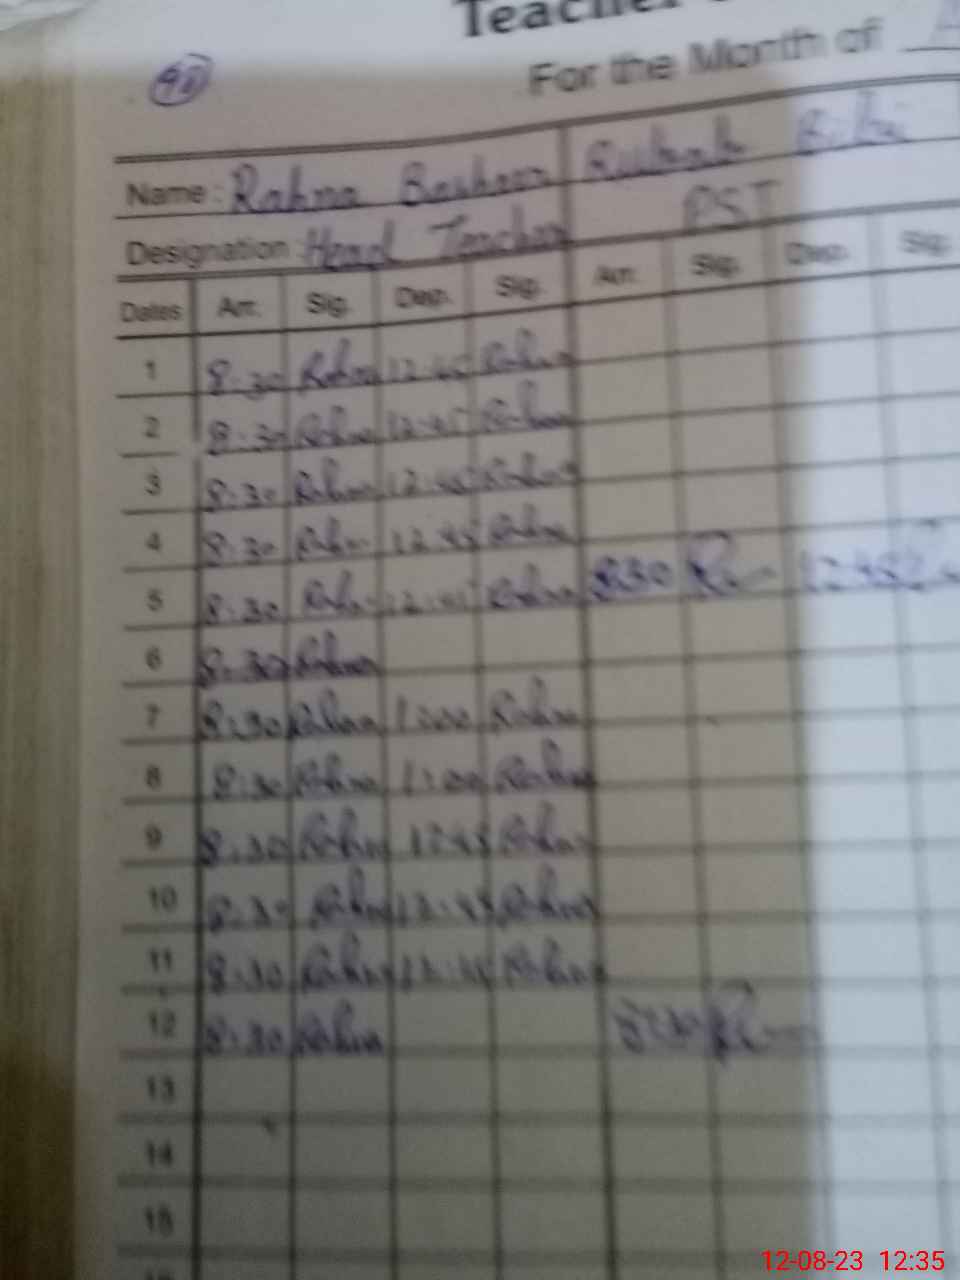 Teacher
For the Month of A
98
Name: Rahna Basheer Bibi
Designation: Head Teacher PST
Dates Arr. Sig. Dep. Sig. Arr. Sig. Dep. Sig.
1 8:30 Rahna 12:45 Rahna
2 8:30 Rahna 12:45 Rahna
3 8:30 Rahna 12:45 Rahna
4 8:30 Rahna 12:45 Rahna
5 8:30 Rahna 12:45 Rahna 8:30 12:45
6 8:30 Rahna
7 8:30 Rahna 1:00 Rahna
8 8:30 Rahna 11:00 Rahna
9 8:30 Rahna 12:45 Rahna
10 8:30 Rahna 12:45 Rahna
11 8:30 Rahna 12:45 Rahna
12 8:30 Rahna 8:30
13
14
15
12-08-23 12:35